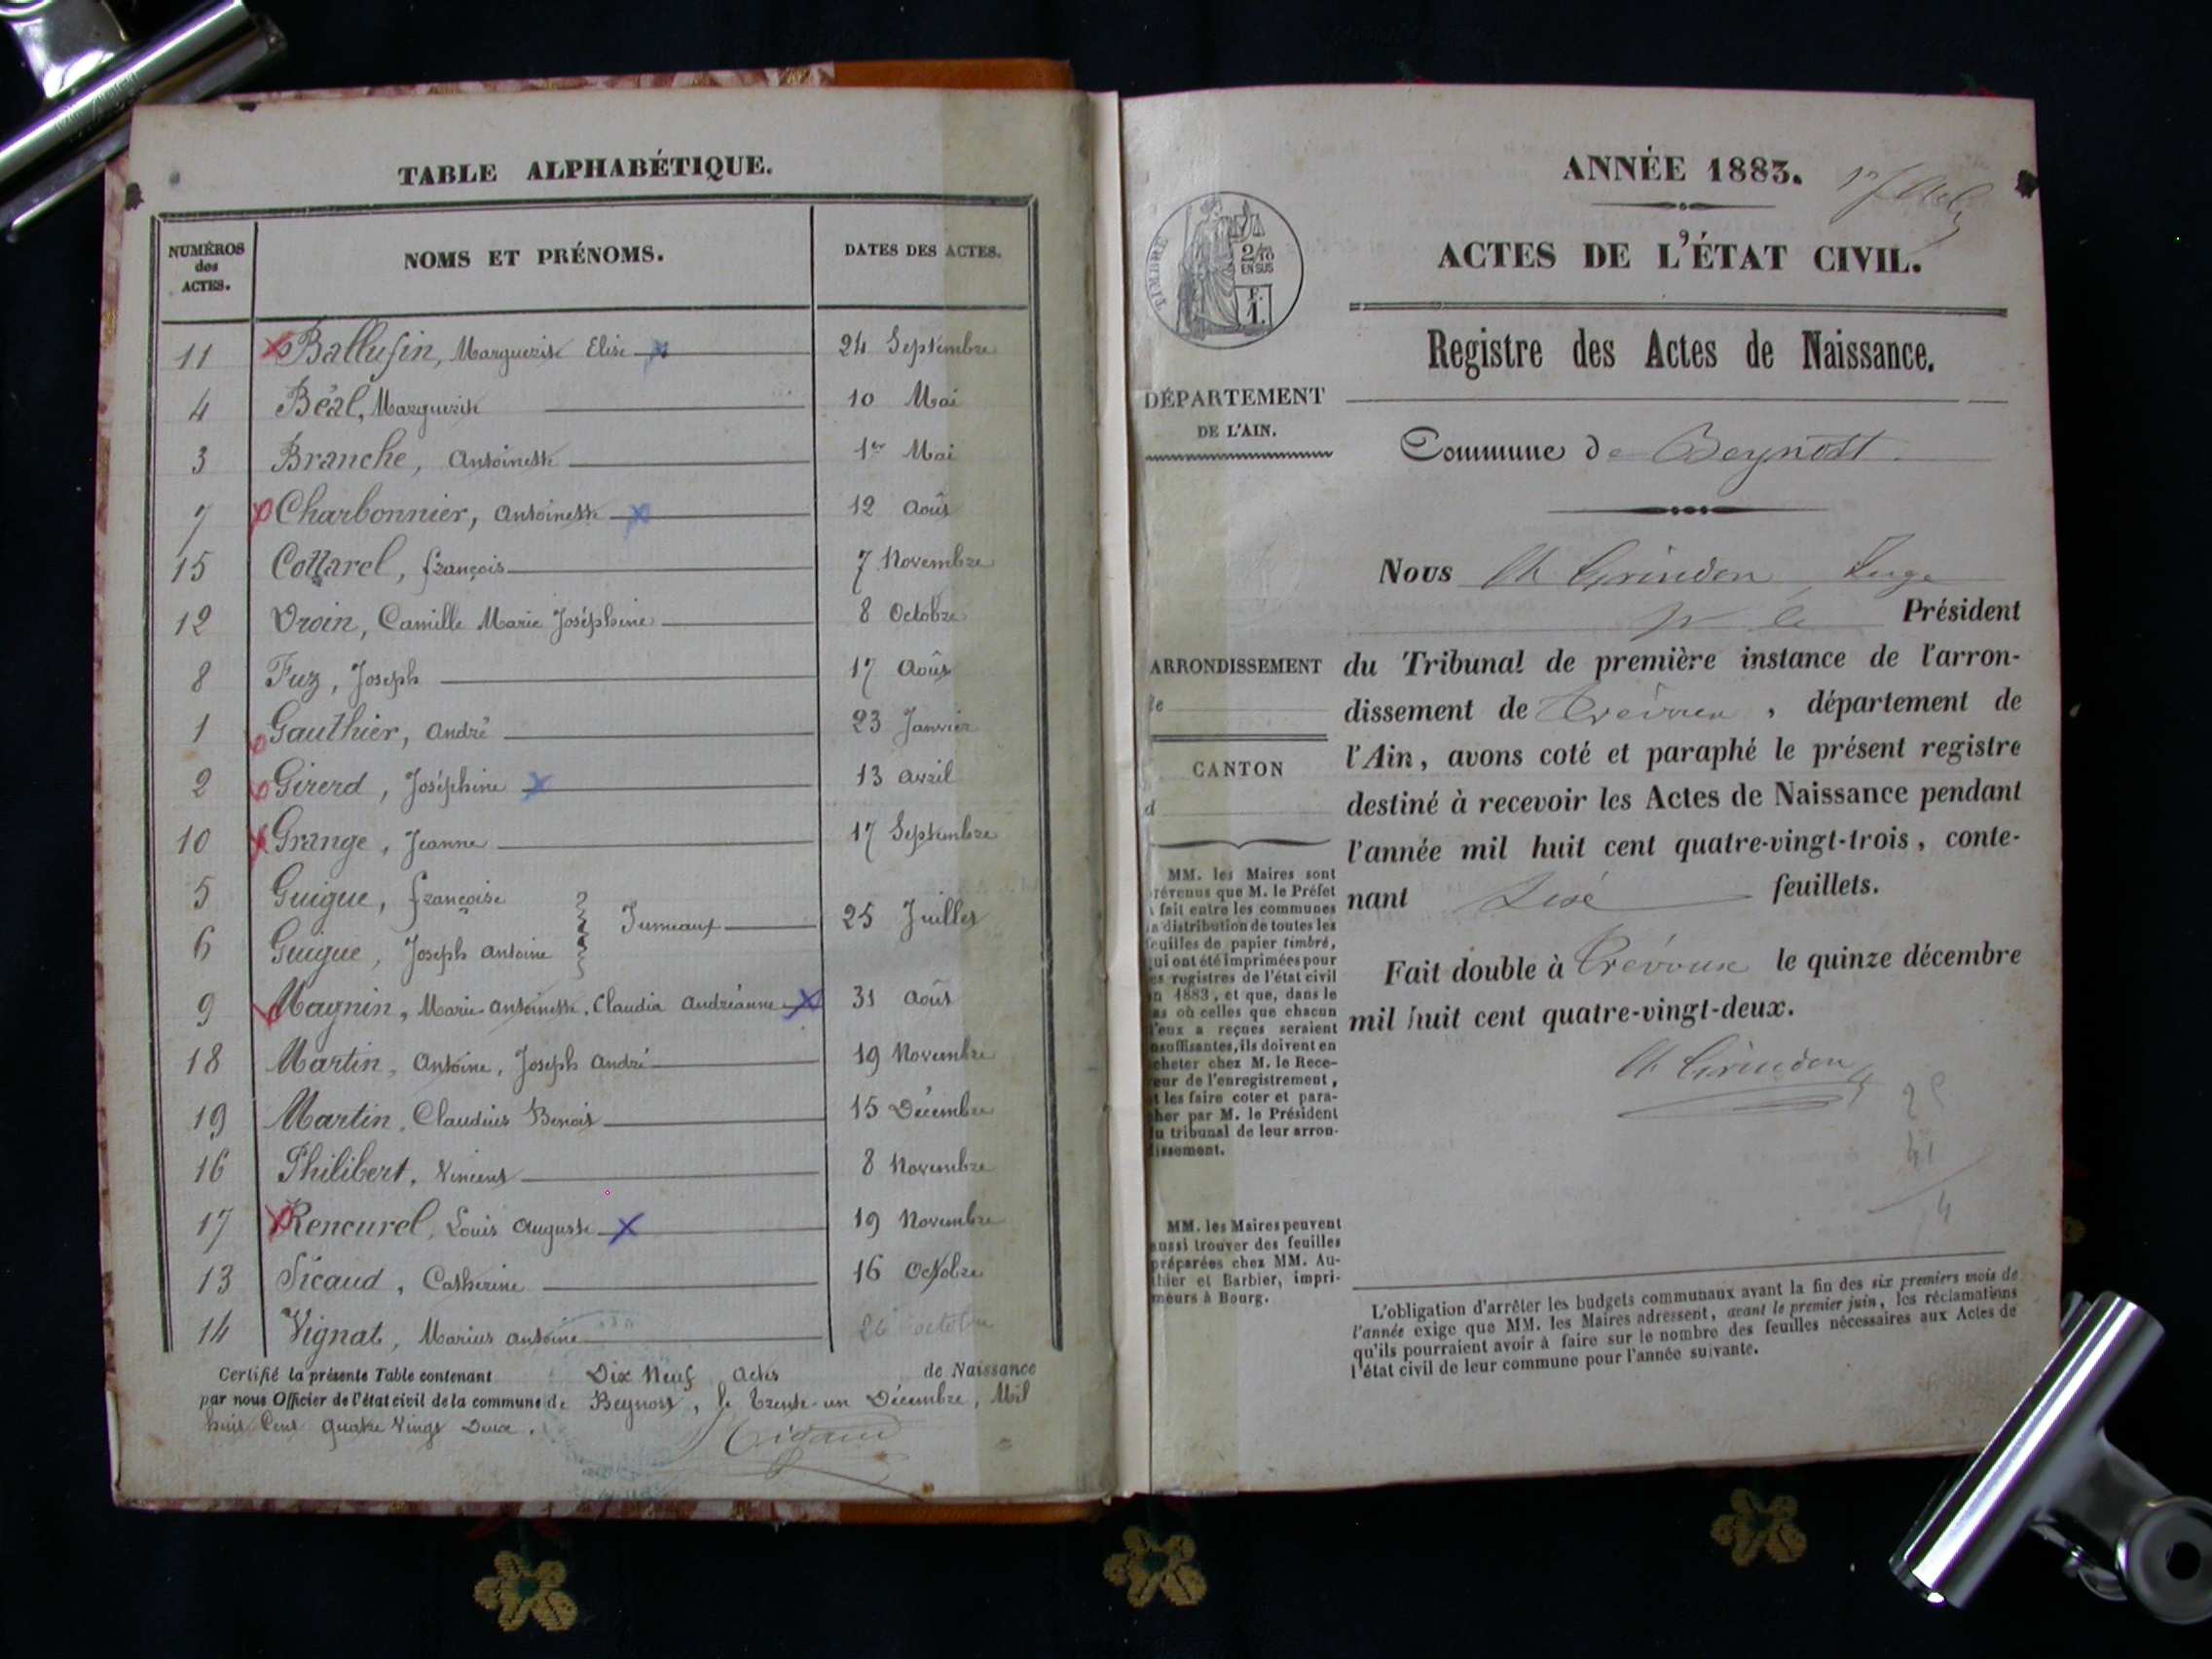 TABLE ALPHABÉTIQUE.
NUMÉROS des ACTES. NOMS ET PRÉNOMS. DATES DES ACTES.
11 Ballufin, Marguerite Elise 24 Septembre
4 Béal, Marguerite 10 Mai
3 Branche, Antoinette 1er Mai
7 Charbonnier, Antoinette 12 Août
15 Cottarel, françois 7 Novembre
12 Droin, Camille Marie Joséphine 8 Octobre
8 Fuz, Joseph 17 Août
1 Gauthier, André 23 Janvier
2 Girerd, Joséphine 13 Avril
10 Grange, Jeanne 17 Septembre
5 Guigue, françoise
6 Guigue, Joseph Antoine } Jumeaux 25 Juillet
9 Magnin, Marie Antoinette, Claudia Andréanne 31 Août
18 Martin, Antoine, Joseph André 19 Novembre
19 Martin, Claudius Benoit 15 Décembre
16 Philibert, Vincent 8 Novembre
17 Rencurel, Louis Auguste 19 Novembre
13 Sicaud, Catherine 16 Octobre
14 Vignat, Marius Antoine 26 octobre
Certifié la présente Table contenant Dix Neuf Actes de Naissance
par nous Officier de l'état civil de la commune de Beynost, le trente-un Décembre, Mil
huit Cent quatre Vingt Deux.
ANNÉE 1883.
TIMBRE
2/10
EN SUS
F.
1.
ACTES DE L'ÉTAT CIVIL.
Registre des Actes de Naissance.
DÉPARTEMENT
DE L'AIN.
Commune de Beynost
Nous Ch Grindon, Juge
Président
ARRONDISSEMENT
du Tribunal de première instance de l'arron-
dissement de Trévoux, département de
l'Ain, avons coté et paraphé le présent registre
CANTON
d
destiné à recevoir les Actes de Naissance pendant
l'année mil huit cent quatre-vingt-trois, conte-
nant feuillets.
Fait double à Trévoux le quinze décembre
mil huit cent quatre-vingt-deux.
Ch Grindon
MM. les Maires sont
révenus que M. le Préfet
fait entre les communes
distribution de toutes les
euilles de papier timbré,
ui ont été imprimées pour
es registres de l'état civil
n 1883, et que, dans le
as où celles que chacun
'eux a reçues seraient
nsuffisantes, ils doivent en
cheter chez M. le Rece-
eur de l'enregistrement,
t les faire coter et para-
her par M. le Président
u tribunal de leur arron-
issement.
MM. les Maires peuvent
ussi trouver des feuilles
préparées chez MM. Au-
thier et Barbier, impri-
meurs à Bourg.
L'obligation d'arrêter les budgets communaux avant la fin des six premiers mois de
l'année exige que MM. les Maires adressent, avant le premier juin, les réclamations
qu'ils pourraient avoir à faire sur le nombre des feuilles nécessaires aux Actes de
l'état civil de leur commune pour l'année suivante.